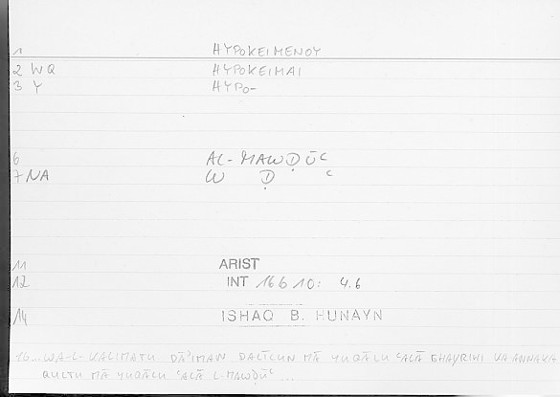 1 HYPOKEIMENOY
2 WQ HYPOKEIMAI
3 Y HYPO-
6 AL-MAWḌŪʿ
7 NA W Ḍ ʿ
11 ARIST
12 INT 16 b 10: 4.6
14 ISHAQ B. HUNAYN
16.. WA-L-KALIMATU DĀʾIMAN DALĪLUN MĀ YUQĀLU ʿALĀ GHAYRIHI KA-ANNAKA
QULTU MĀ YUQĀLU ʿALĀ L-MAWḌŪʿ...